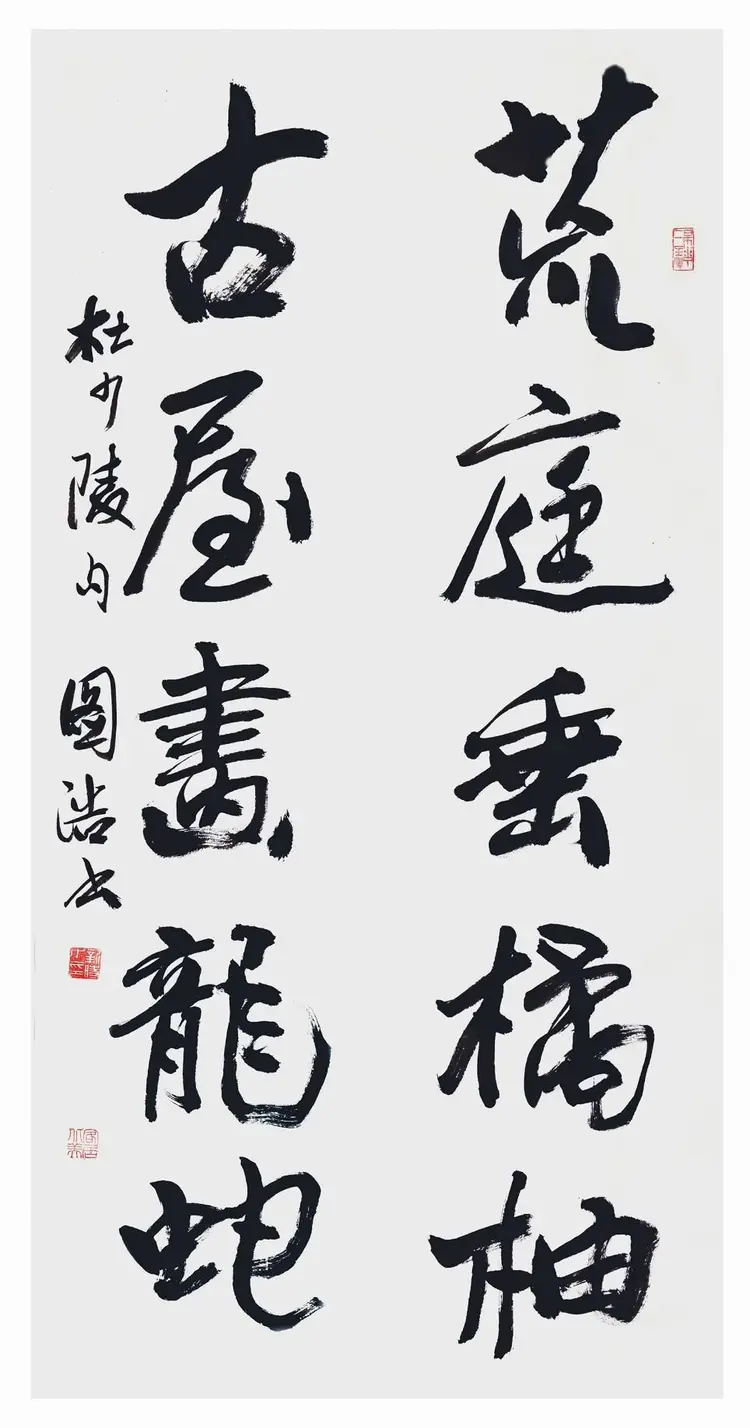 荒庭垂橘柚
古屋畫龍蛇
杜少陵句 國浩书